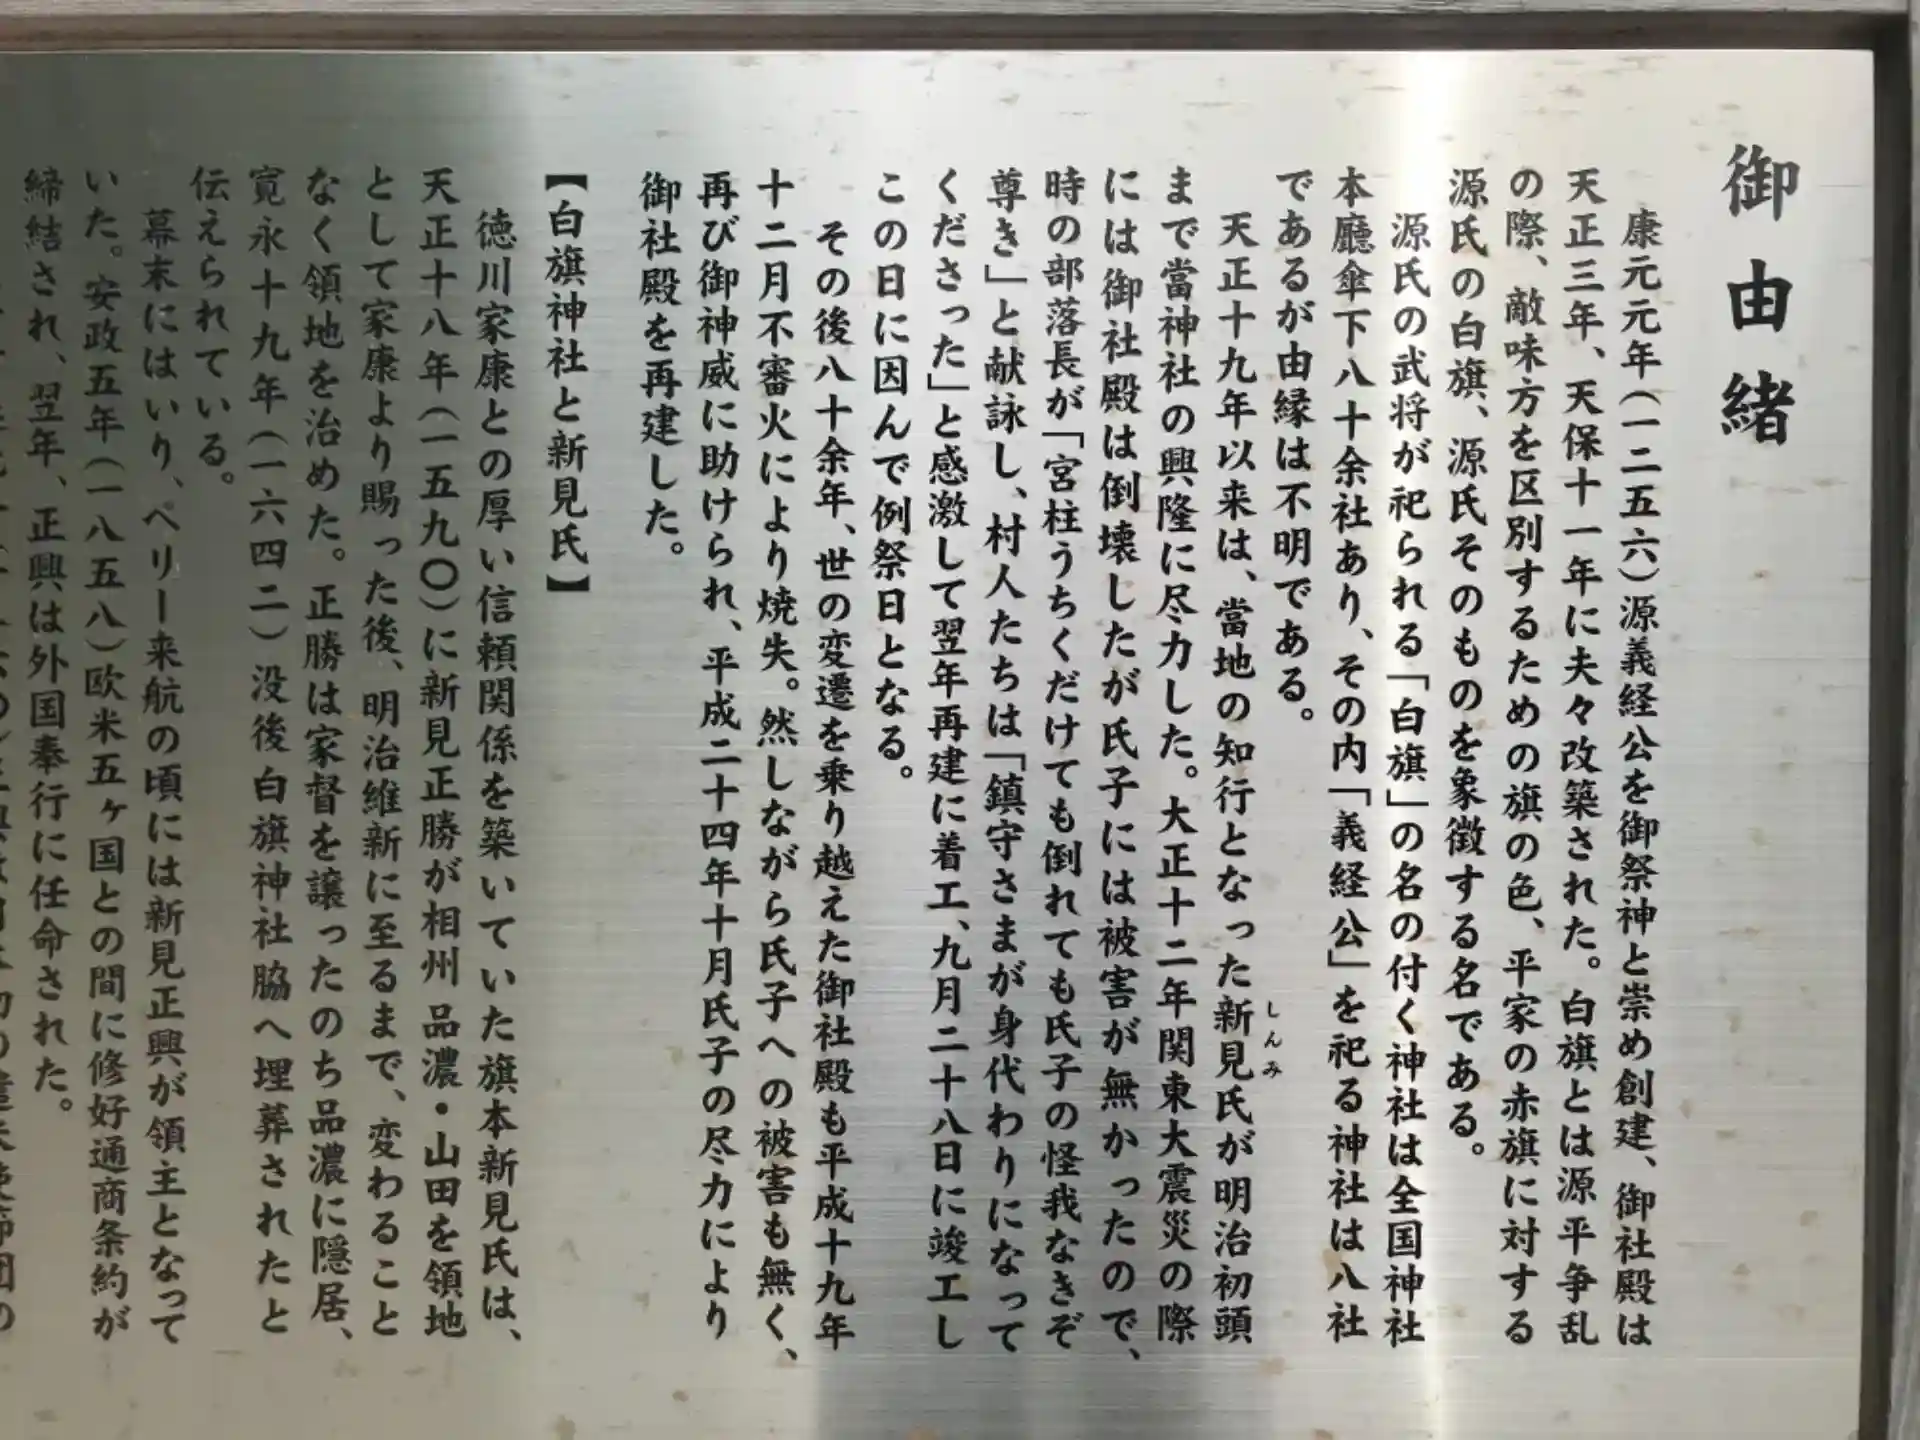 御由緒
康元元年(一二五六)源義経公を御祭神と崇め創建、御社殿は
天正三年、天保十一年に夫々改築された。白旗とは源平争乱
の際、敵味方を区別するための旗の色、平家の赤旗に対する
源氏の白旗、源氏そのものを象徴する名である。
源氏の武将が祀られる「白旗」の名の付く神社は全国神社
本廳傘下八十余社あり、その内「義経公」を祀る神社は八社
であるが由縁は不明である。
天正十九年以来は、當地の知行となった新見氏が明治初頭
しんみ
まで當神社の興隆に尽力した。大正十二年関東大震災の際
には御社殿は倒壊したが氏子には被害が無かったので、
時の部落長が「宮柱うちくだけても倒れても氏子の怪我なきぞ
尊き」と献詠し、村人たちは「鎮守さまが身代わりになって
くださった」と感激して翌年再建に着工、九月二十八日に竣工し
この日に因んで例祭日となる。
その後八十余年、世の変遷を乗り越えた御社殿も平成十九年
十二月不審火により焼失。然しながら氏子への被害も無く、
再び御神威に助けられ、平成二十四年十月氏子の尽力により
御社殿を再建した。
【白旗神社と新見氏】
徳川家康との厚い信頼関係を築いていた旗本新見氏は、
天正十八年(一五九〇)に新見正勝が相州品濃・山田を領地
として家康より賜った後、明治維新に至るまで、変わること
なく領地を治めた。正勝は家督を譲ったのち品濃に隠居、
寛永十九年(一六四二)没後白旗神社脇へ埋葬されたと
伝えられている。
幕末にはいり、ペリー来航の頃には新見正興が領主となって
いた。安政五年(一八五八)欧米五ヶ国との間に修好通商条約が
締結され、翌年、正興は外国奉行に任命された。